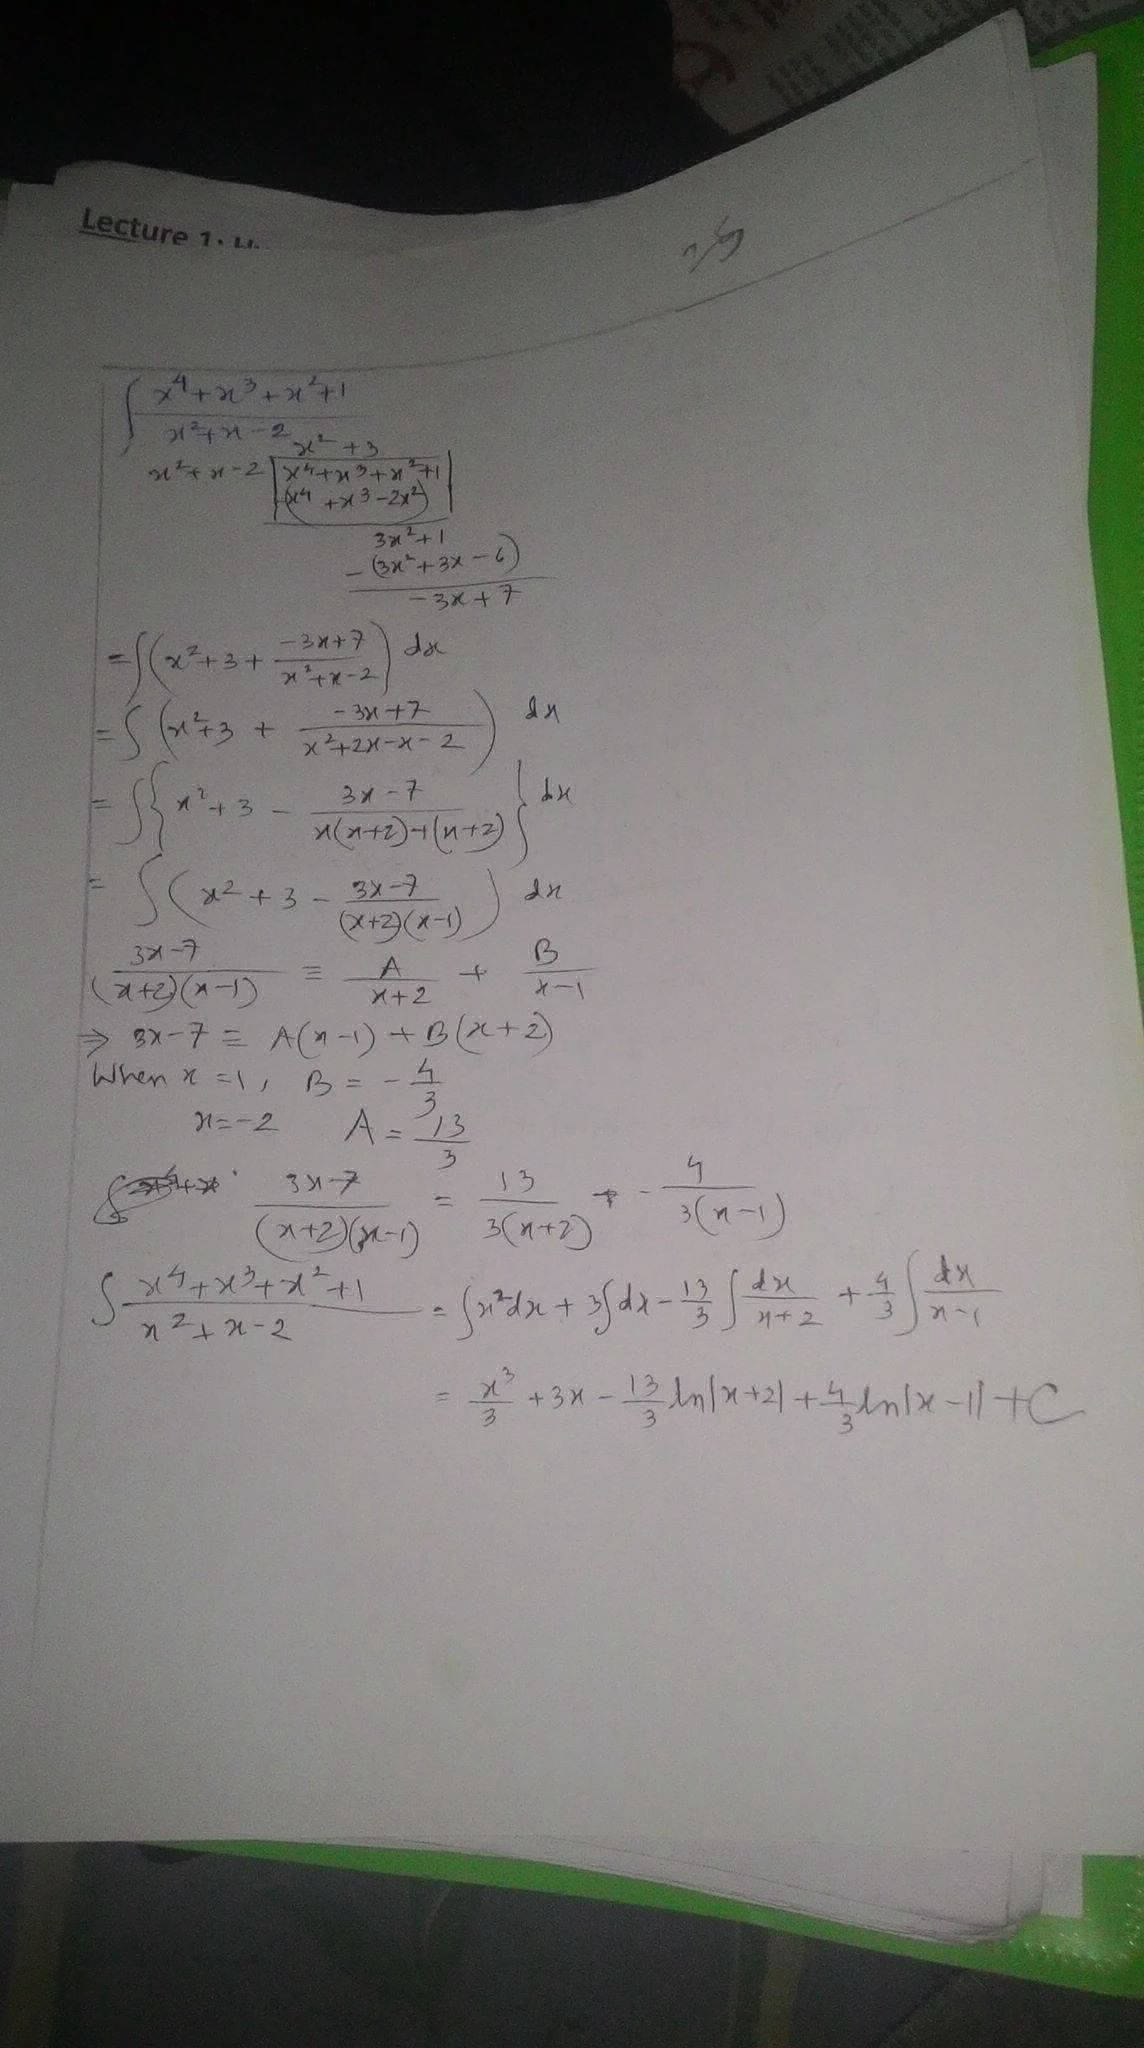 Lecture 1:
∫ x⁴+x³+x²+1 / x²+x-2
x²+3
x²+x-2 | x⁴+x³+x²+1
-(x⁴+x³-2x²)
3x²+1
-(3x²+3x-6)
-3x+7
= ∫(x²+3+ (-3x+7)/(x²+x-2)) dx
= ∫(x²+3 + (-3x+7)/(x²+2x-x-2)) dx
= ∫{x²+3 - (3x-7)/(x(x+2)-1(x+2))} dx
= ∫(x²+3 - (3x-7)/((x+2)(x-1))) dx
(3x-7)/((x+2)(x-1)) ≡ A/(x+2) + B/(x-1)
⇒ 3x-7 ≡ A(x-1) + B(x+2)
When x=1, B = -4/3
x=-2 A = 13/3
(3x-7)/((x+2)(x-1)) = 13/(3(x+2)) + -4/(3(x-1))
∫ (x⁴+x³+x²+1)/(x²+x-2) = ∫x²dx + 3∫dx - 13/3 ∫ dx/(x+2) + 4/3 ∫ dx/(x-1)
= x³/3 + 3x - 13/3 ln|x+2| + 4/3 ln|x-1| + C